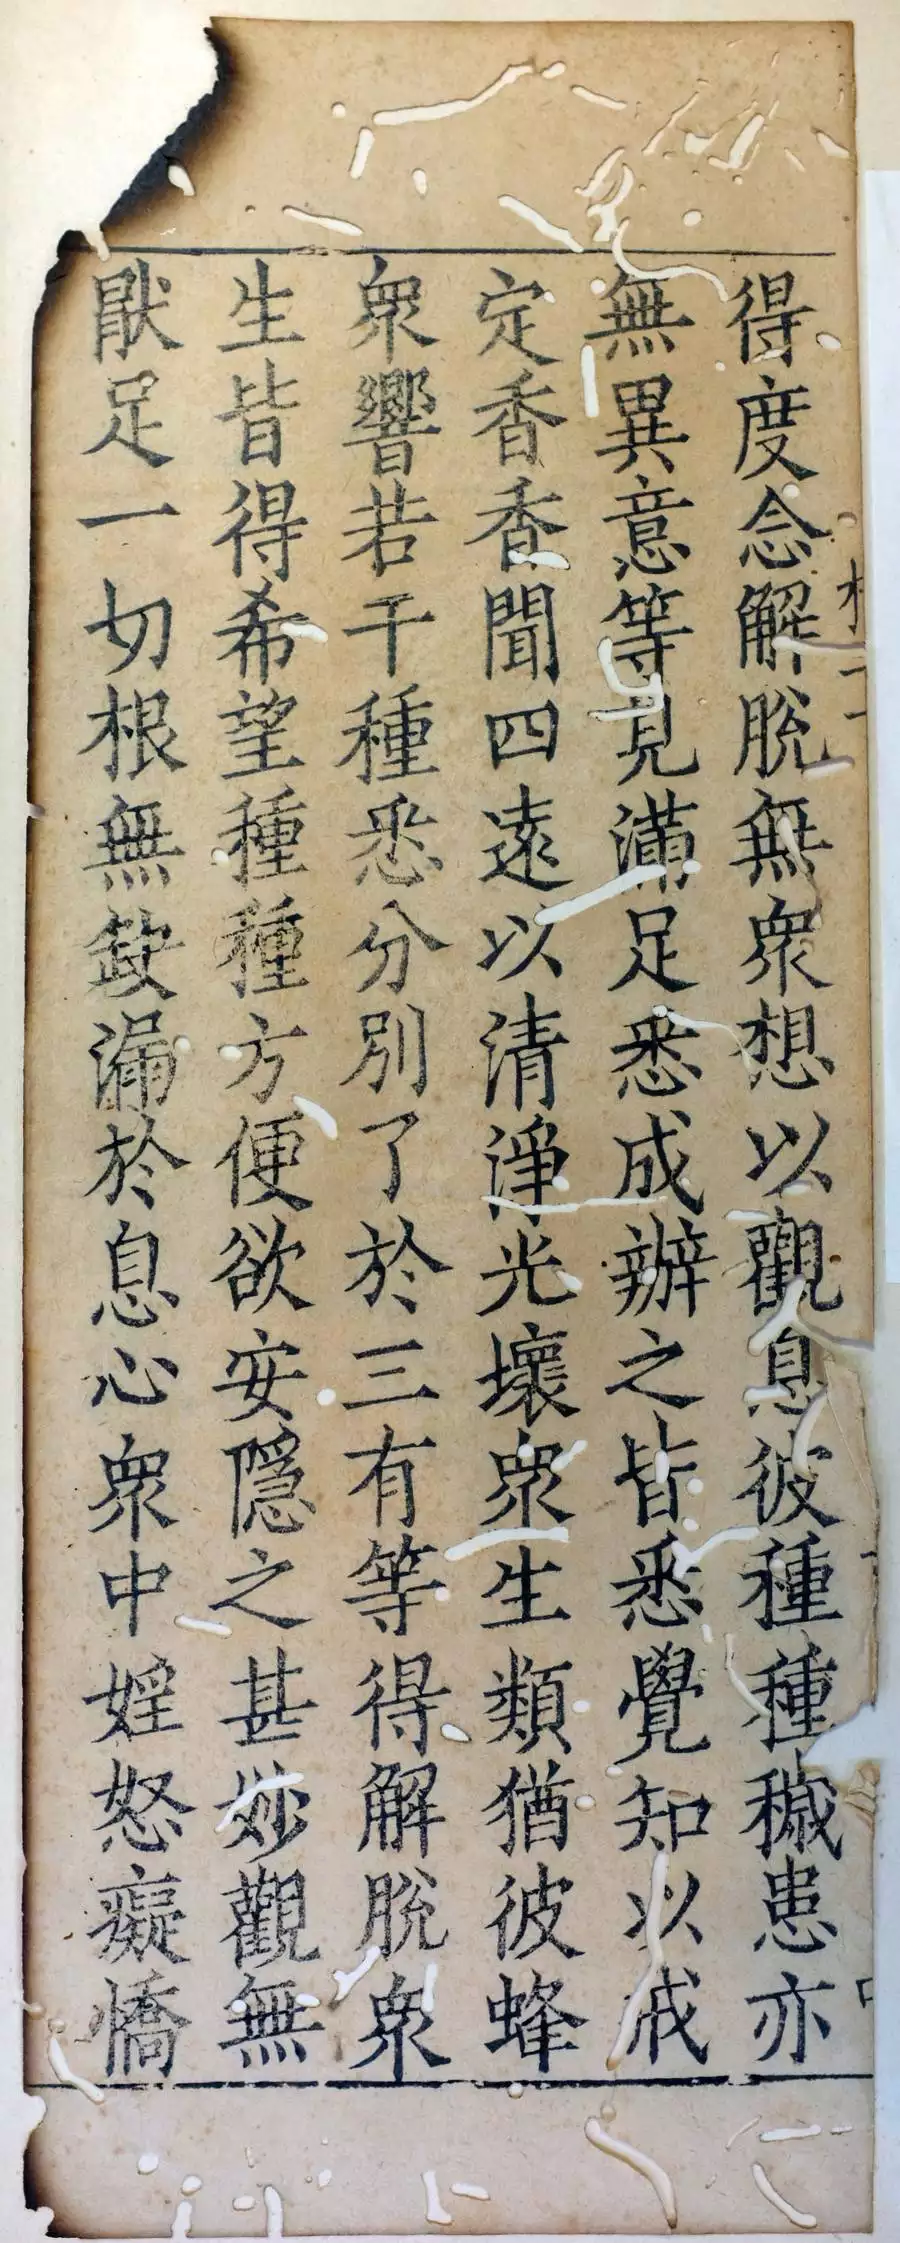 得度念解脫無衆想以觀息彼種種穢患亦
無異意等見滿足悉成辦之皆悉覺知以戒
定香香聞四遠以清淨光壞衆生類猶彼蜂
衆響若干種悉分別了於三有等得解脫衆
生皆得希望種種方便欲安隱之甚妙觀無
猒足一切根無𡙇漏於息心衆中婬怒癡憍